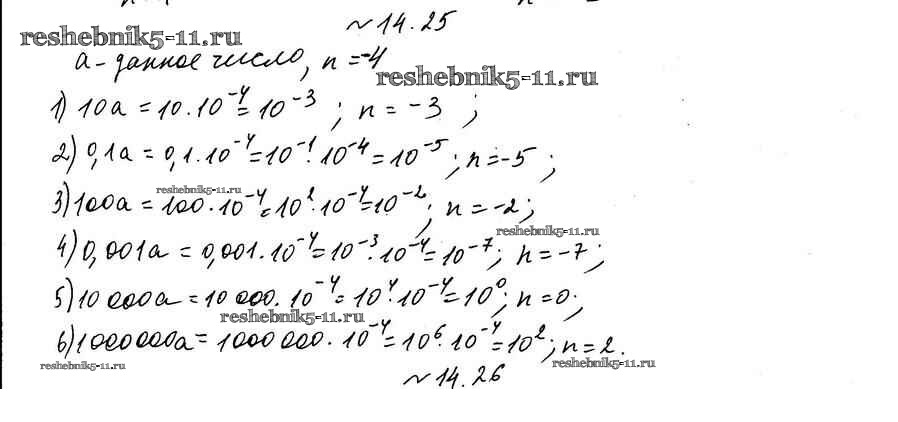 №14.25
reshebnik5-11.ru
a - данное число, n = -4
reshebnik5-11.ru
1) 10a = 10·10⁻⁴ = 10⁻³; n = -3;
2) 0,1a = 0,1·10⁻⁴ = 10⁻¹·10⁻⁴ = 10⁻⁵; n = -5;
reshebnik5-11.ru
3) 100a = 100·10⁻⁴ = 10²·10⁻⁴ = 10⁻²; n = -2;
reshebnik5-11.ru
4) 0,001a = 0,001·10⁻⁴ = 10⁻³·10⁻⁴ = 10⁻⁷; n = -7;
5) 10 000a = 10 000·10⁻⁴ = 10⁴·10⁻⁴ = 10⁰; n = 0;
reshebnik5-11.ru
6) 1000 000a = 1000 000·10⁻⁴ = 10⁶·10⁻⁴ = 10²; n = 2.
reshebnik5-11.ru
reshebnik5-11.ru
№14.26